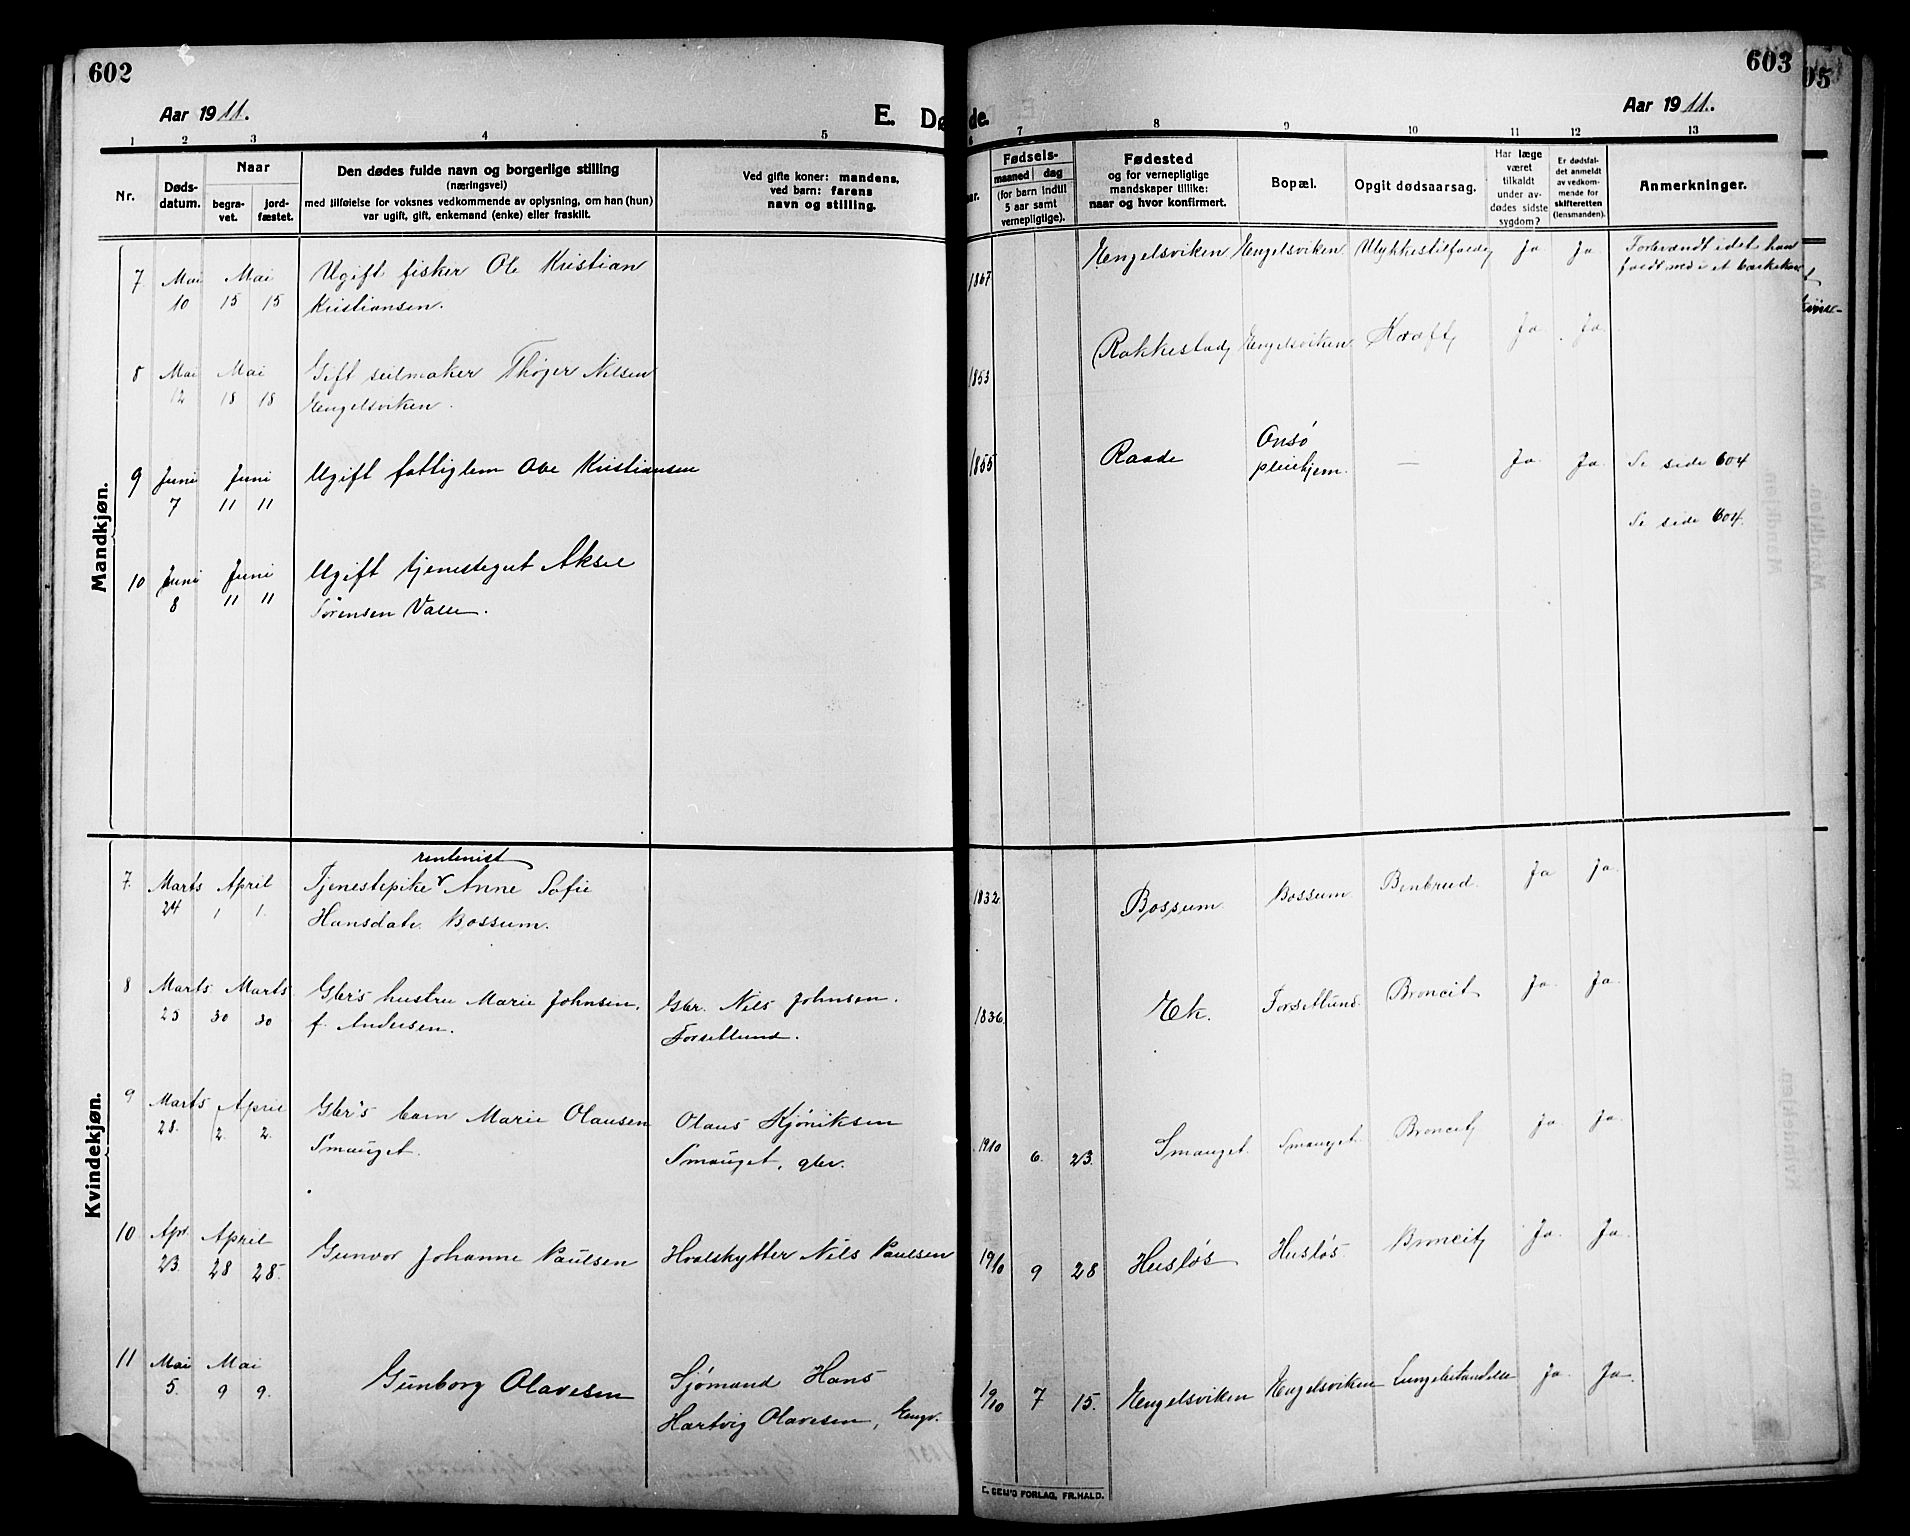 602
603
05
Aar 1911.
E. Dø de.
Aar 1911.
1 2 3 4 5 6 7 8 9 10 11 12 13
Nr.
Døds-
datum.
Naar
begra-
vet.
jord-
fæstet.
Den dødes fulde navn og borgerlige stilling
(næringsvei)
med tilføielse for voksnes vedkommende av oplysning, om han (hun)
var ugift, gift, enkemand (enke) eller fraskilt.
Ved gifte koner: mandens,
ved barn: farens
navn og stilling.
aar.
Fødsels-
maaned dag
(for barn indtil
5 aar samt
vernepligtige).
Fødested
og for vernepligtige
mandskaper tillike:
naar og hvor konfirmert.
Bopæl.
Opgit dødsaarsag.
Har læge
været
tilkaldt
under av-
dødes sidste
sygdom?
Er dødsfal-
det anmeldt
av vedkom-
mende for
skifteretten
(lensmanden).
Anmerkninger.
Mandkjøn.
7 Mai Mai Ugift fisker Ole Kristian 1867 Engelsviken Engelsviken Ulykkestilfælde Ja Ja
10 15 15 Kristiansen.
8 Mai Mai Gift seilmaker Thøger Nilsen 1853 Rakkestad Engelsviken Kræft Ja Ja
12 18 18 Engelsviken.
9 Juni Juni Ugift fattiglem Ole Kristiansen 1855 Raade Onsø pleiehjem. — Ja Ja Se side 604
7 11 11
Se side 604.
10 Juni Juni Ugift tjenestegut Aksel
8 11 11 Sørensen Valle.
Kvindekjøn.
rentenist
7. Marts April Tjenestepike Anne Sofie 1832 Bossum Bossum Benbrud. Ja Ja.
24 1 1. Hansdatr. Bossum.
8 Marts Marts Gbr's hustru Marie Johnsen, Gbr. Nils Johnsen. 1836 Ek. Forsetlund. Broncit Ja Ja.
25 30 30 f. Andersen. Forsetlund.
9 Marts April Gbr's barn Marie Olausen Olaus Kjøniksen 1910 6. 23. Smauget. Smauget. Broncit Ja Ja.
28. 2. 2. Smauget. Smauget, gbr.
10 Apr. April Gunvor Johanne Paulsen Hvalskytter Nils Paulsen 1910 9 28 Husløs Husløs Broncit Ja. Ja.
23. 28 28.
11 Mai Mai Gunborg Olavesen Sjømand Hans 1910 7 15. Engelsviken Engelsviken Lungebetændelse Ja. Ja.
5. 9 9. Hartvig Olavesen, Engv.
FORLAG, FR.HALD.